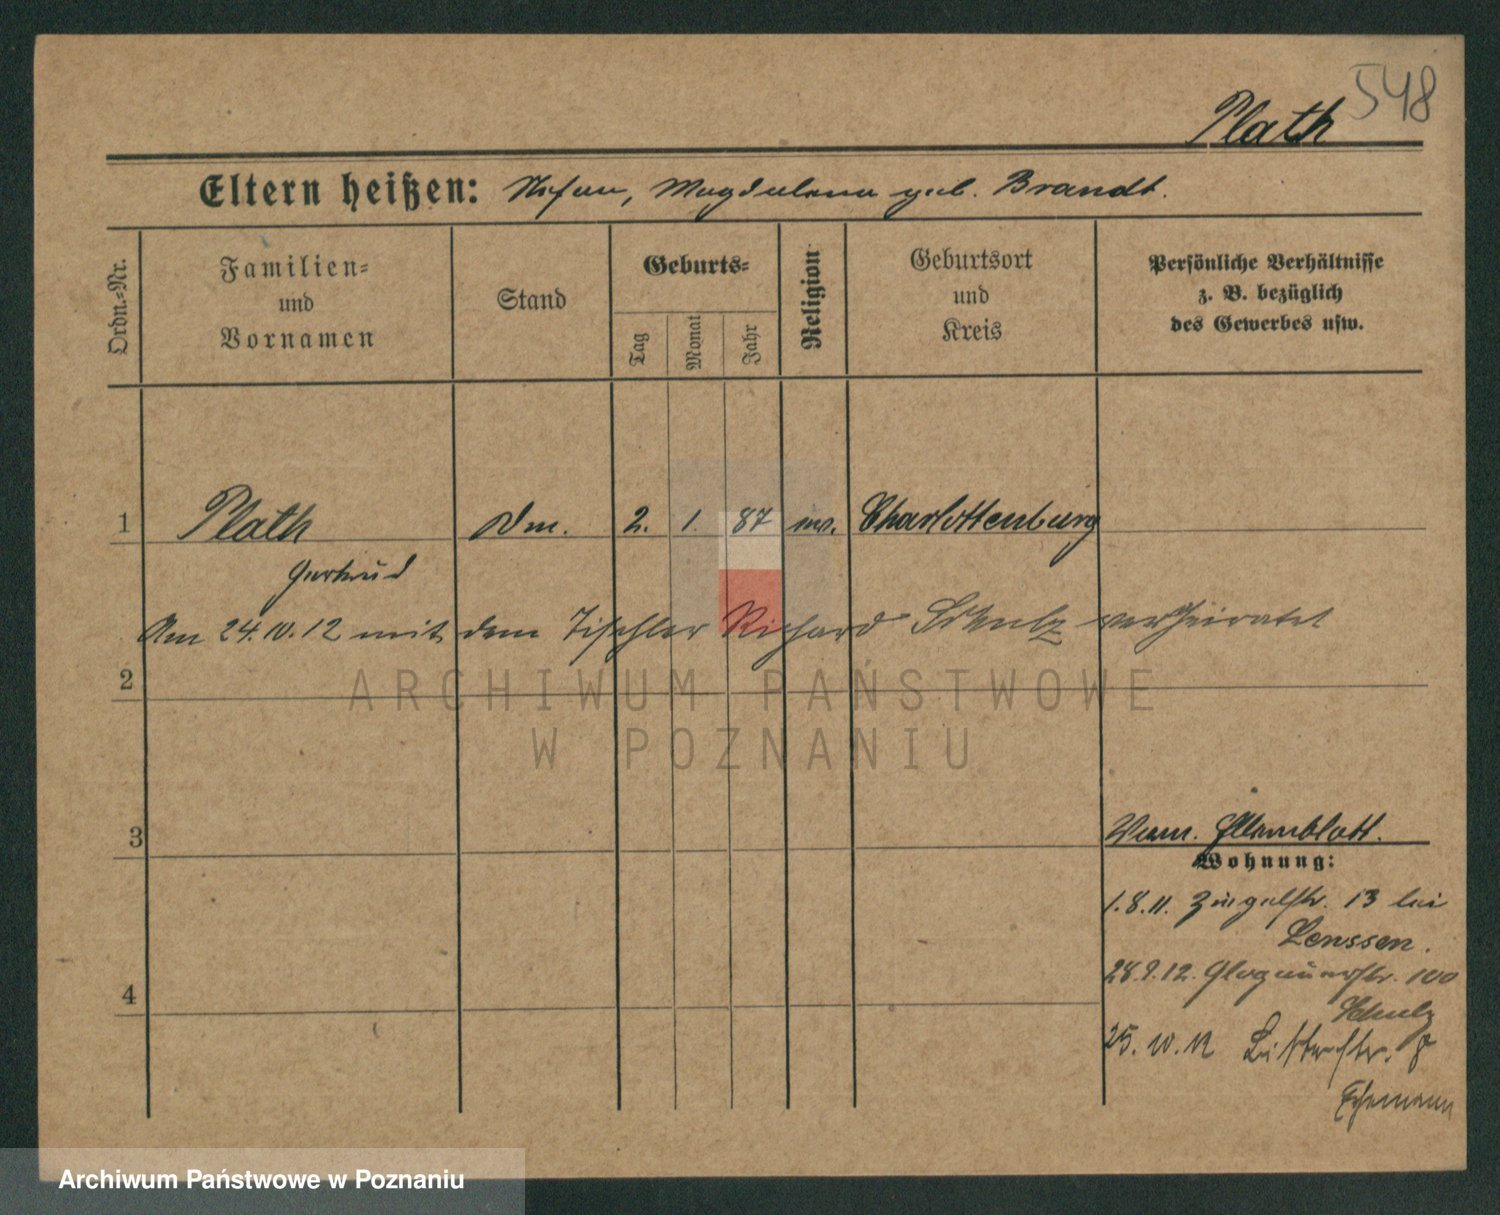 548
Plath
Eltern heißen: Magdalena geb. Brandt.
Ordn.-Nr.
Familien-
und
Vornamen
Stand
Geburts-
Tag
Monat
Jahr
Religion
Geburtsort
und
Kreis
Persönliche Verhältnisse
z. B. bezüglich
des Gewerbes usw.
1 Plath 2. 1. 87 ev. Charlottenburg
Gertrud
Am 24.10.12 mit dem Tischler Richard Schulz verheiratet
2
ARCHIWUM PAŃSTWOWE
W POZNANIU
3
Wohnung:
1.8.11. 13 bei
Lenssen.
28.9.12. Glogauerstr. 100
Schulz
4
25.10.12 8
Ehemann
Archiwum Państwowe w Poznaniu